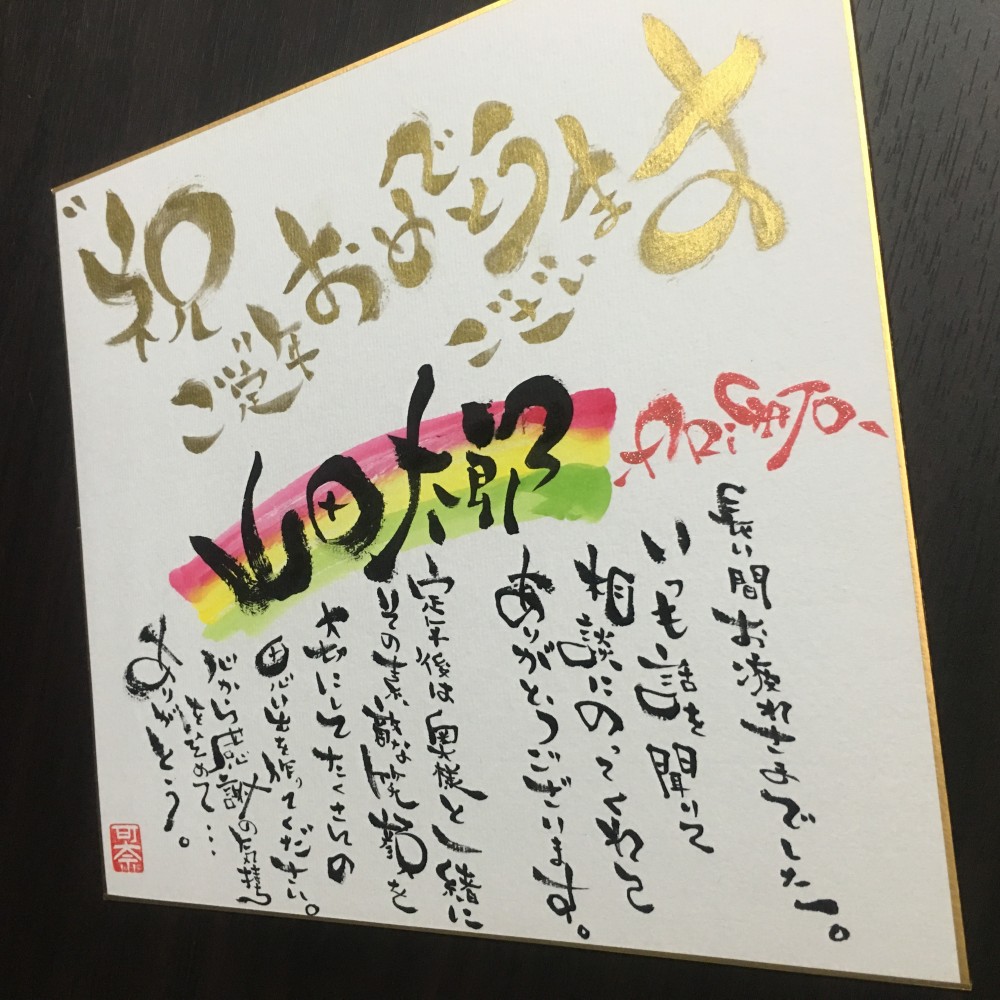 祝
ご定年
おめでとう
ござい
ます
山田太郎
ARiGATO
長い間お疲れさまでした。
いつも話を聞いて
相談にのってくれて
ありがとうございます。
定年後は奥様と一緒に
その素敵な笑顔を
大切にしてたくさんの
思い出を作ってください。
心から感謝の気持ち
を込めて…
ありがとう。
可奈